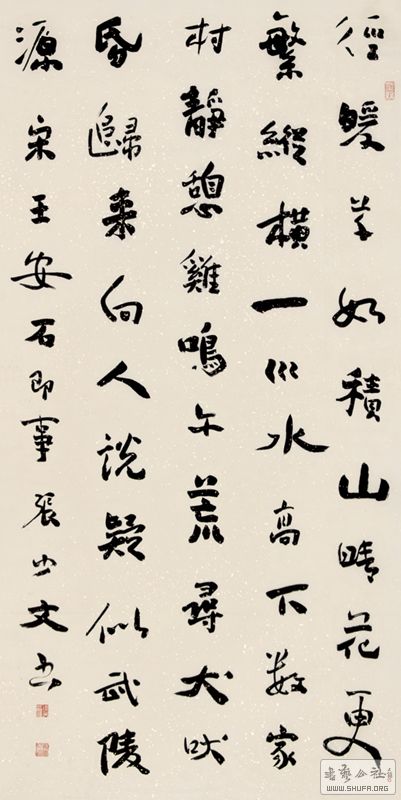 徑暖草如積山晴花更
繁縱橫一川水高下數家
村靜憩雞鳴午荒尋犬吠
昏歸來向人說疑似武陵
源宋王安石即事張少文書
書藝公社
WWW.SHUFA.ORG